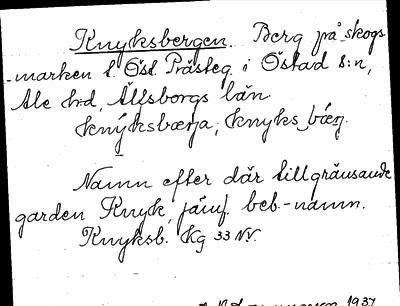 Knyksbergen. Berg på skogs
-marken t. Östl. Prästeg. i Östad s:n,
Ale hrd, Älfsborgs län
knýksbærja, knyks bærj.
Namn efter där tillgränsande
garden Knyk, jämf. beb.-namn.
Knyksb. Kg 33 NV.
1937